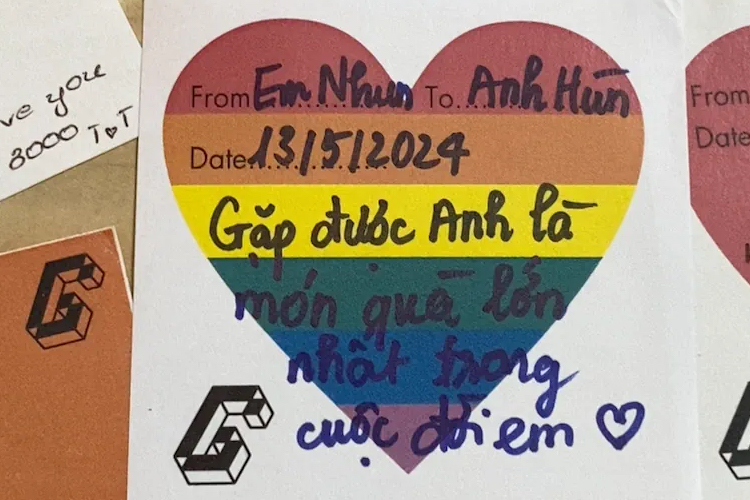 ve you
3000 T♥T
From Em Nhun To Anh Hùn
Date 13/5/2024
Gặp được Anh là
món quà lớn
nhất trong
cuộc đời em ♡
From
Date